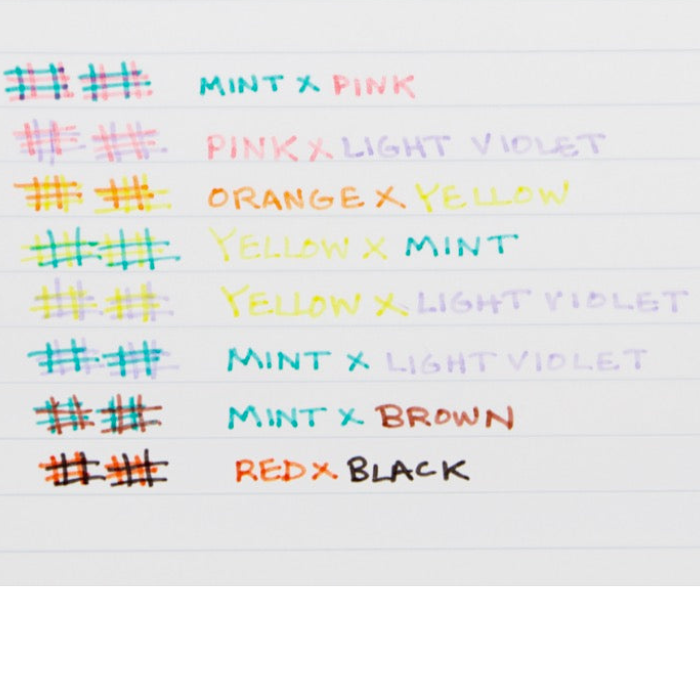 MINT X PINK
PINK X LIGHT VIOLET
ORANGE X YELLOW
YELLOW X MINT
YELLOW X LIGHT VIOLET
MINT X LIGHT VIOLET
MINT X BROWN
RED X BLACK